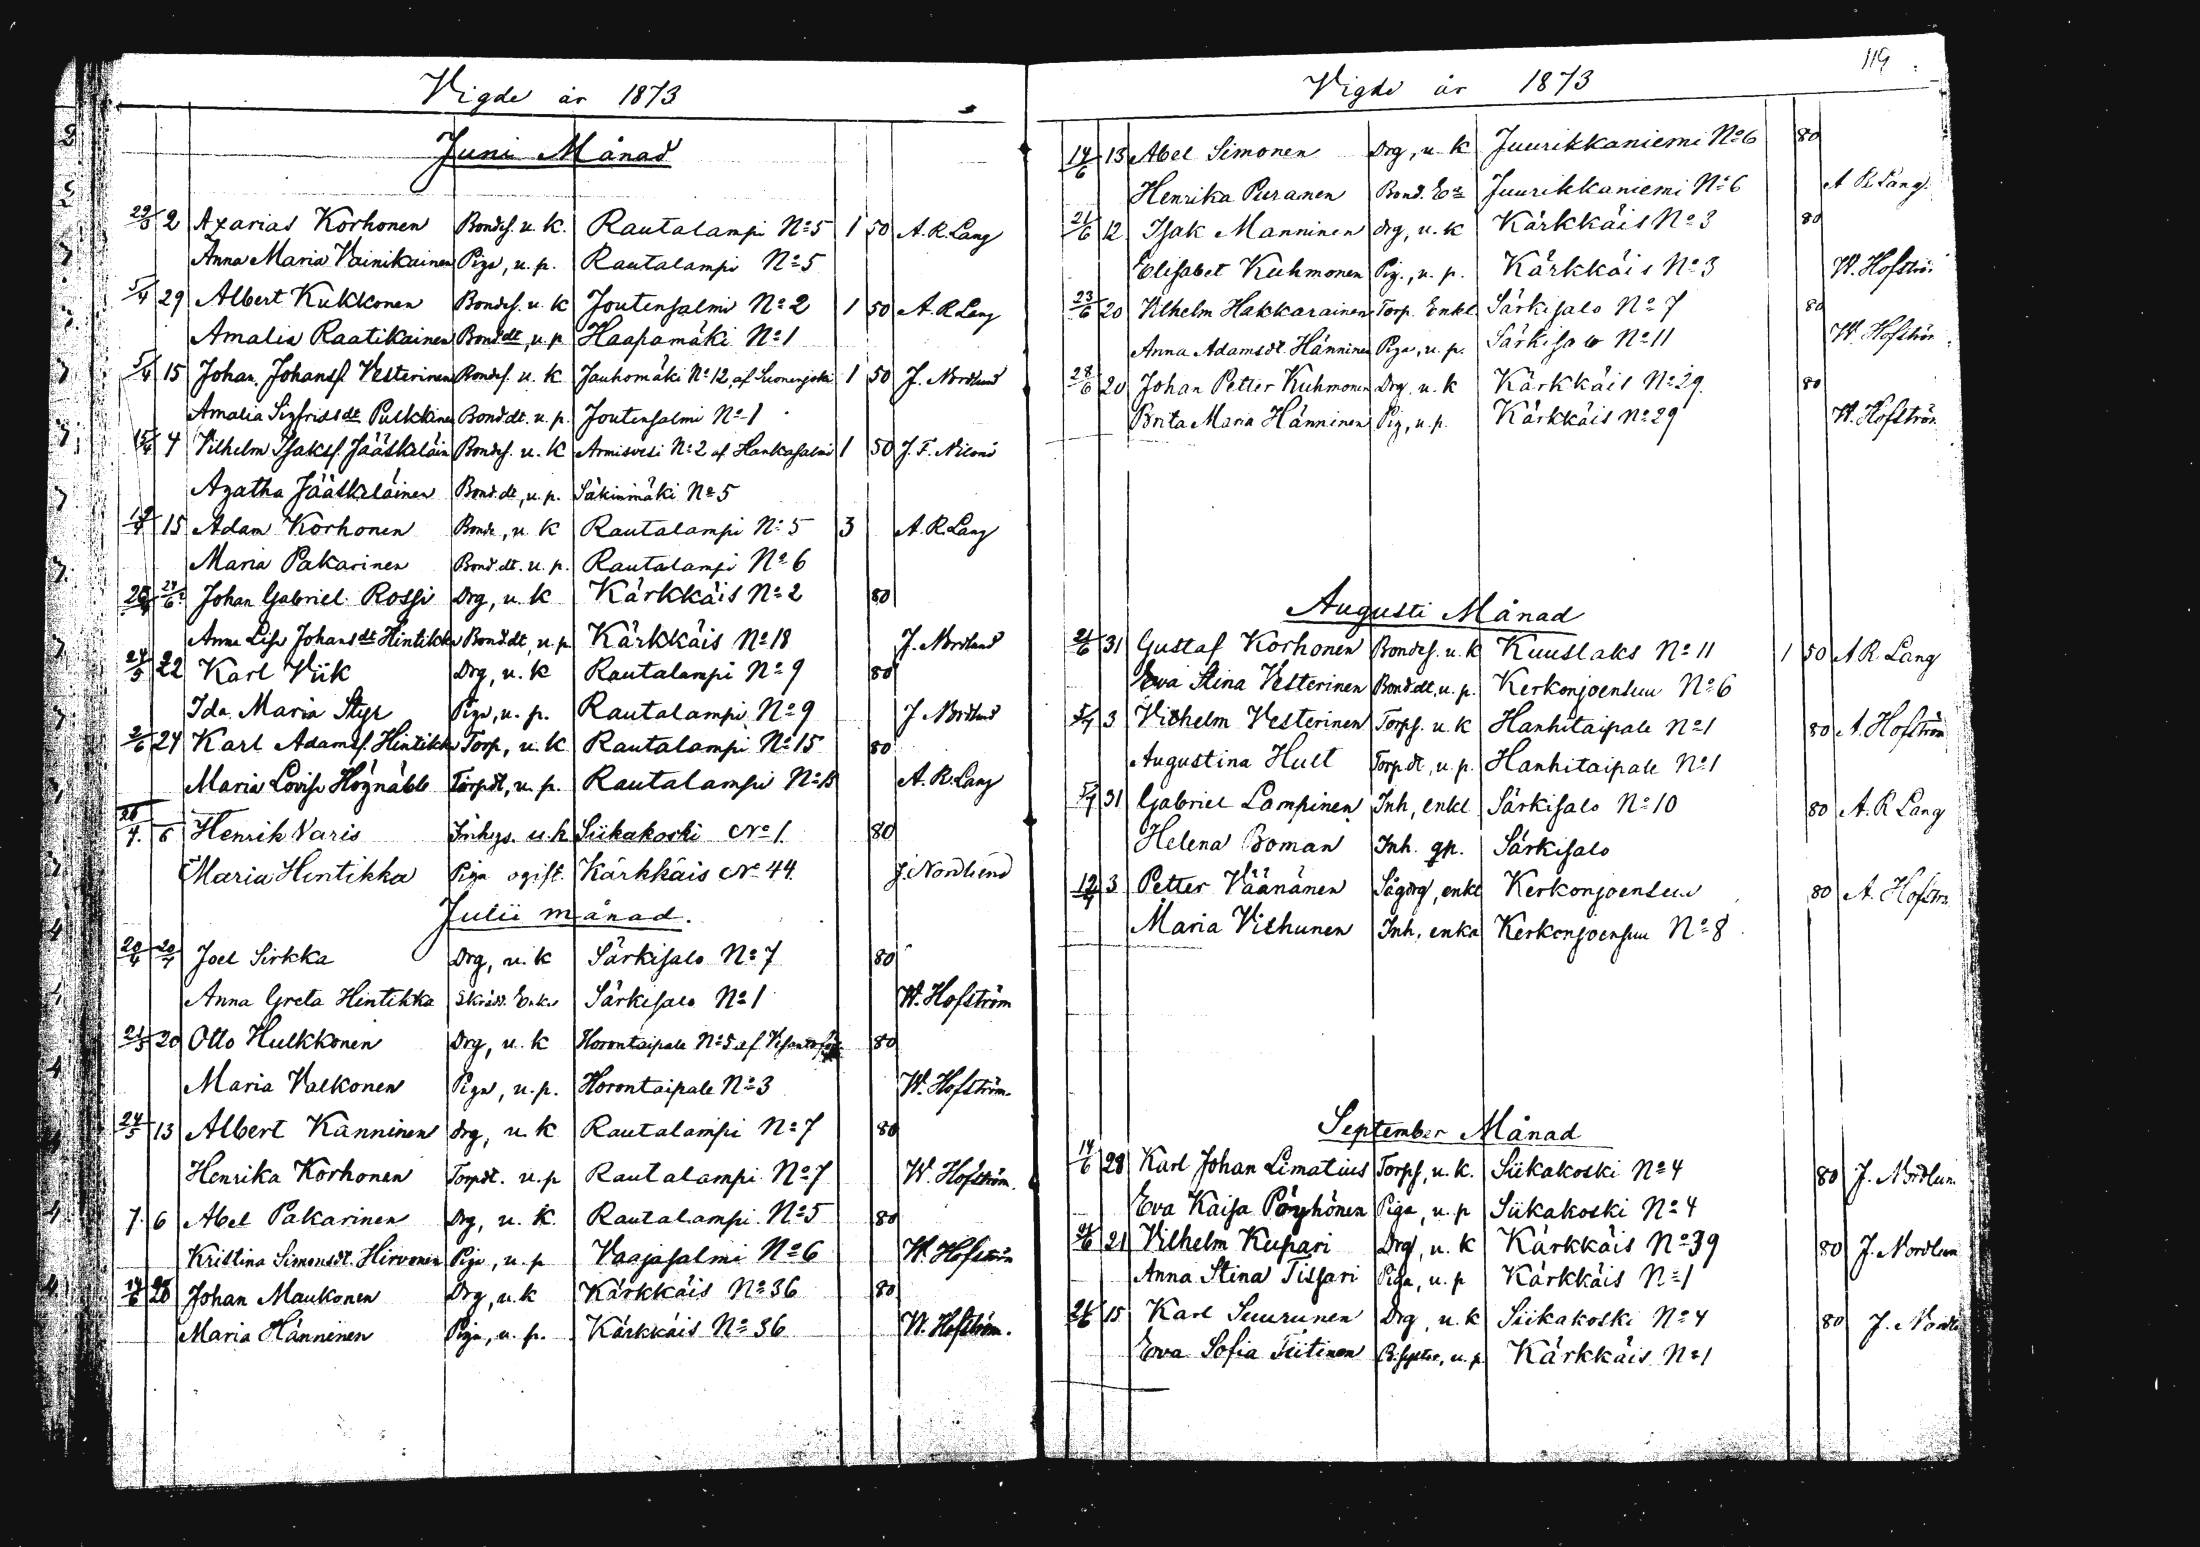 Vigde år 1873
Juni Månad
29/3 2 Azarias Korhonen Bondes. u. k. Rautalampi No 5 1 50 A. R. Lang
Anna Maria Vainikainen Piga, u. p. Rautalampi No 5
5/4 29 Albert Kukkonen Bondes. u. k Joutensalmi No 2 1 50 A. R. Lang
Amalia Raatikainen Bonddt, u. p Haapamäki No 1
5/4 15 Johan Johanss. Vesterinen Bondes. u. k Jauhomäki No 12 af Suonenjoki 1 50 J. Nordlund
Amalia Sigfridsdt Pulkkinen Bonddt. u. p. Joutensalmi No 1
15/4 4 Vilhelm Isakss. Jääskeläin Bondes. u. k Armisvesi No 2 af Hankasalmi 1 50 J. F.
Agatha Jääskeläinen Bond.dt, u. p. Säkinmäki No 5
15 Adam Korhonen Bonde, u. k Rautalampi No 5 3 A. R. Lang
Maria Pakarinen Bond.dt. u. p. Rautalampi No 6
Johan Gabriel Rossi Drg, u. k Kärkkäis No 2 80
Anna Lisa Johansdt Hintikka Bonddt, u. p Kärkkäis No 18 J. Nordlund
24/5 22 Karl Viik Drg, u. k Rautalampi No 9 80
Ida Maria Styf Piga, u. p. Rautalampi No 9 J Nordlund
2/6 24 Karl Adamss. Hintikka Torp, u. k Rautalampi No 15 80
Maria Lovisa Högnäbb Torpdt, u. p. Rautalampi No 15 A. R. Lang
26/4. 6 Henrik Varis Inhys. u. k Siikakoski No 1 80
Maria Hintikka Piga ogift. Kärkkäis No 44 J. Nordlund
Julii månad.
20/4 20/7 Joel Sirkka Drg, u. k Särkisalo No 7 80
Anna Greta Hintikka Skrädd. Enka Särkisalo No 1 W. Hofström
24/5 20 Otto Hulkkonen Drg, u. k Horontaipale No 5 af 80
Maria Valkonen Piga, u. p. Horontaipale No 3 W. Hofström
24/5 13 Albert Kanninen drg, u. k Rautalampi No 7 80
Henrika Korhonen Torpdt. u. p Rautalampi No 7 W. Hofström.
7. 6 Abel Pakarinen Drg, u. k. Rautalampi No 5 80
Kristina Simonsdt. Hirvonen Piga, u. p Vaajasalmi No 6 W. Hofström
14/6 20 Johan Maukonen Drg, u. k Kärkkäis No 36 80
Maria Hänninen Piga, u. p. Kärkkäis No 36 W. Hofström.
119
Vigde år 1873
14/6 13 Abel Simonen Drg, u. k Juurikkaniemi No 6 80
Henrika Puranen Bond. Ea Juurikkaniemi No 6 A R. Lang.
21/6 12 Isak Manninen drg, u. k Kärkkäis No 3 80
Elisabet Kuhmonen Pig., u. p. Kärkkäis No 3 W. Hofström
23/6 20 Vilhelm Hakkarainen Torp. Enkl Särkisalo No 7 80
Anna Adamsdt. Hänninen Piga, u. p. Särkisalo No 11 W. Hofström
28/6 20 Johan Petter Kuhmonen Drg. u. k Kärkkäis No 29. 80
Brita Maria Hänninen Pig, u. p. Kärkkäis No 29 W. Hofström
Augusti Månad
21/6 31 Gustaf Korhonen Bondes. u. k Kuuslaks No 11 1 50 A R. Lang
Eva Stina Vesterinen Bonddt, u. p. Kerkonjoensuu No 6
5/7 3 Vilhelm Vesterinen Torps. u. k Hanhitaipale No 1 80 A. Hofström
Augustina Hult Torpdt, u. p. Hanhitaipale No 1
5/7 31 Gabriel Lampinen Inh, enkl Särkisalo No 10 80 A. R Lang
Helena Boman Inh. gp. Särkisalo
12/7 3 Petter Väänänen Sågdrg, enkl Kerkonjoensuu 80 A. Hofströ
Maria Vilhunen Inh. enka Kerkonjoensuu No 8
September Månad
14/6 28 Karl Johan Limatius Torps, u. k. Siikakoski No 4 80 J. Nordlun
Eva Kaisa Pöyhönen Piga, u. p Siikakoski No 4
21 Vilhelm Kupari Drg, u. k Kärkkäis No 39 80 J. Nordlun
Anna Stina Tissari Piga, u. p Kärkkäis No 1
15 Karl Suurunen Drg, u. k Siikakoski No 4 80 J. Nordl
Eva Sofia Tiitinen u. p. Kärkkäis No 1